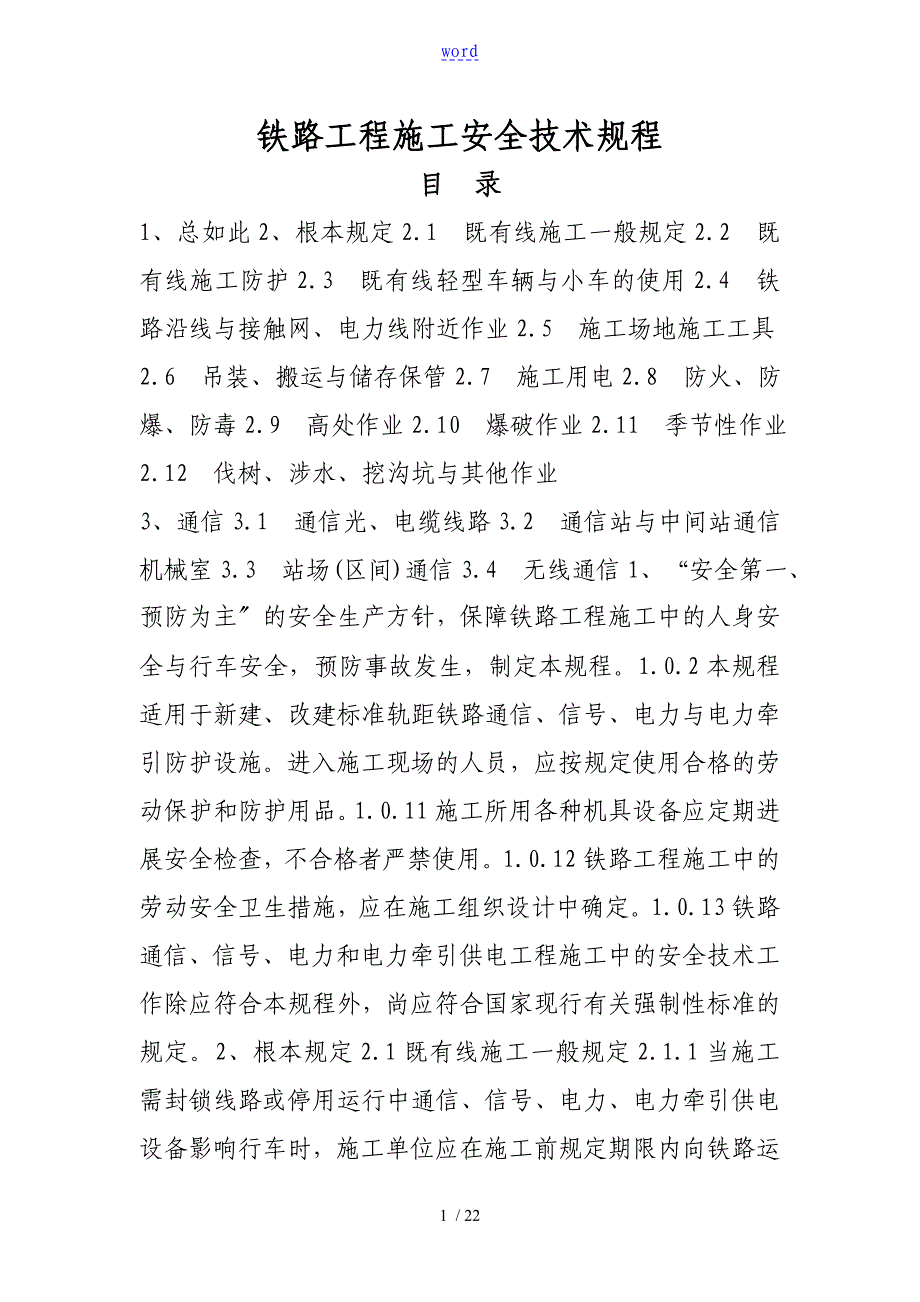 word
铁路工程施工安全技术规程
目　录
1、总如此2、根本规定2.1　既有线施工一般规定2.2　既
有线施工防护2.3　既有线轻型车辆与小车的使用2.4　铁
路沿线与接触网、电力线附近作业2.5　施工场地施工工具
2.6　吊装、搬运与储存保管2.7　施工用电2.8　防火、防
爆、防毒2.9　高处作业2.10　爆破作业2.11　季节性作业
2.12　伐树、涉水、挖沟坑与其他作业
3、通信3.1　通信光、电缆线路3.2　通信站与中间站通信
机械室3.3　站场(区间)通信3.4　无线通信1、“安全第一、
预防为主〞的安全生产方针，保障铁路工程施工中的人身安
全与行车安全，预防事故发生，制定本规程。1.0.2本规程
适用于新建、改建标准轨距铁路通信、信号、电力与电力牵
引防护设施。进入施工现场的人员，应按规定使用合格的劳
动保护和防护用品。1.0.11施工所用各种机具设备应定期进
展安全检查，不合格者严禁使用。1.0.12铁路工程施工中的
劳动安全卫生措施，应在施工组织设计中确定。1.0.13铁路
通信、信号、电力和电力牵引供电工程施工中的安全技术工
作除应符合本规程外，尚应符合国家现行有关强制性标准的
规定。2、根本规定2.1既有线施工一般规定2.1.1当施工
需封锁线路或停用运行中通信、信号、电力、电力牵引供电
设备影响行车时，施工单位应在施工前规定期限内向铁路运
1 / 22